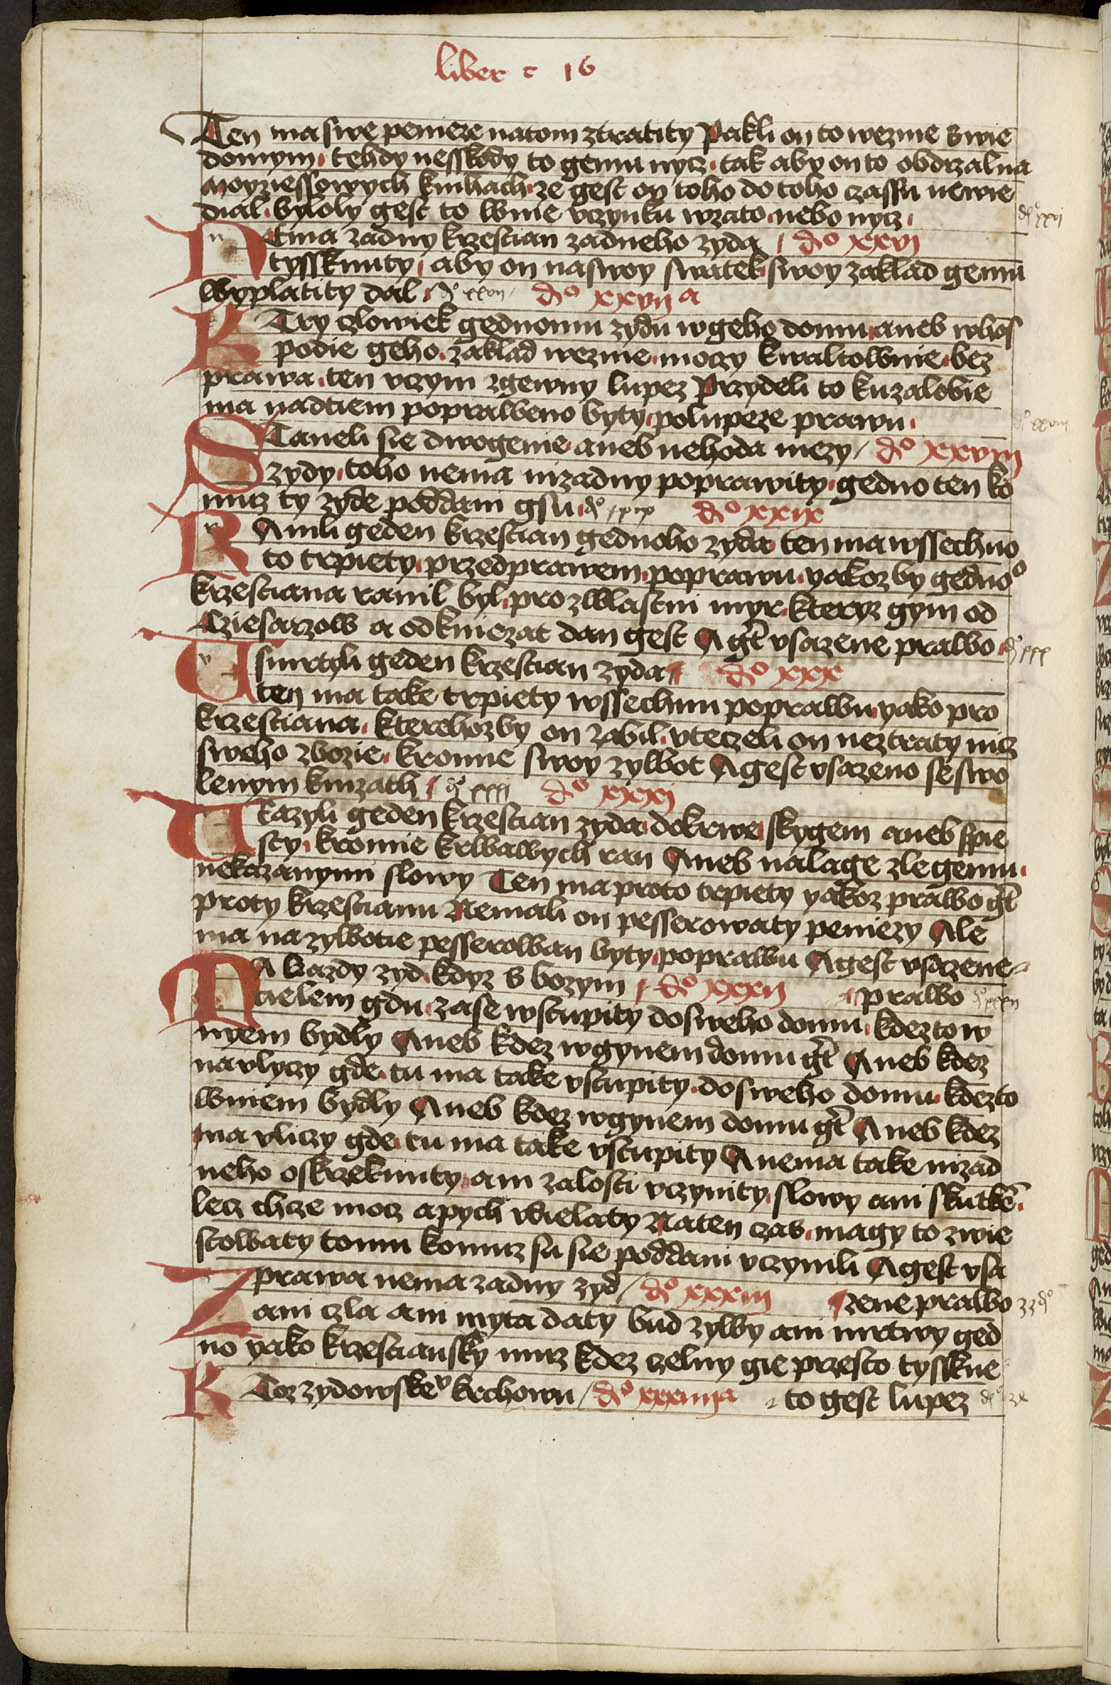 liber c 16
Ten ma swe penieze natom ztratity Pakli on to wezme swie
domym tehdy nesskody to gemu nycz tak aby on to obdrzal na
moyziessowych knihach ze gest on toho do toho czassu newie
dial byloly gest to wnie vczynku wzato nebo nycz
Nema zadny krzestian zadneho zyda d͛o xxvi
tyssknuty aby on naswoy swatek swoy zaklad gemu
wyplatity dal d͛o xxvii a
Ktery czlowiek gednomu zydu w geho domu aneb w hos
podie geho zaklad wezme moczy kwaltownie bez
prawa ten vczym zgewny lupez Przydeli to kuzalobie
ma nadtiem popraweno byty polupeze prawu
Staneli sie dwogenie aneb nehoda mezy d͛o xxviii
zydy toho nema nizadny poprawity gedno ten ko
muz ty zyde poddani gsu d͛o xxix
Ranili geden krzestian gednoho zyda ten ma wssechno
to trpiety przed prawem poprawu yakoz by gednoo
krzestiana ranil byl pro zwlastni myr kteryz gym od
Cziesarzow a od kniezat dan gest A gt vsazene prawo
Vsmrtyli geden krzestian zyda d͛o xxx
ten ma take trpiety wssechnu poprawu yako pro
krzestiana kterehozby on zabil vteczeli on neztraty nicz
sweho zbozie kromie swoy zywot A gest vsazeno seswo
lenym knizath d͛o xxxi
Vrazyli geden krzestian zyda dokrwe skygem aneb spie
sty kromie krwawych ran Aneb nalage zle gemu
nekazanymi slowy Ten ma proto trpiety yakoz prawo gt
proty krzestianu Nemali on pesserowaty peniezy Ale
ma na zywotie pesserowan byty poprawu A gest vsazene
Ma kazdy zyd kdyz s bozym d͛o xxxii prawo
tielem gdu zase wstupity do sweho domu kdez to w
nyem bydly Aneb kdez w gynem domu gt Aneb kdez
na vlyczy gde tu ma take vstupity do sweho domu kdezto
wniem bydly Aneb kdez w gynem domu gt Aneb kdez
na vliczy gde tu ma take vstupity A nema take nizad
neho oskrzeknuty ani zalosti vczynity slowy ani skutke
lecz chcze mocz apych vdielaty Naten czas magy to zwie
stowaty tomu komuz su sie poddani vczynili A gest vsa
Z prawa nema zadny zyd d͛o xxxiii zene prawo
ani czla ani myta daty bud zywy ani mrtwy ged
no yako krzestiansky muz kdez czelny gie przesto tysskne
Ktoz zydowske krchowu d͛o xxxiiii a to gest lupez